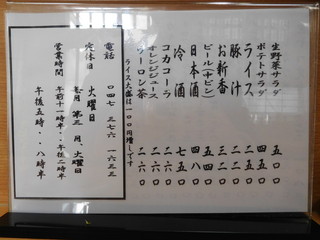 生野菜サラダ 五〇〇
ポテトサラダ 四五〇
ライス 二五〇
豚汁
お新香 三二〇
ビール(中ビン) 五四〇
日本酒 四八〇
冷酒 七五〇
コカコーラ 二六〇
オレンジジュース 二六〇
ウーロン茶 二六〇
ライス大盛は一〇〇円増しです
電話 〇四七 三七六 一六三三
定休日 火曜日
毎月 第三 月、火曜日
営業時間 午前十一時半・・午後二時
午後五時・・八時半